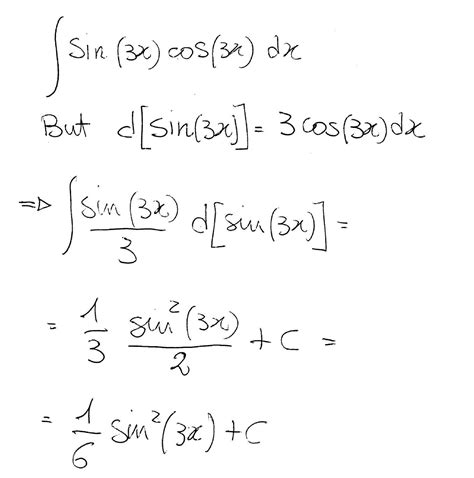 ∫ sin (3x) cos(3x) dx
But d[sin(3x)] = 3 cos(3x) dx
⇒ ∫ sin (3x)/3 d[sin(3x)] =
= 1/3 sin²(3x)/2 + C =
= 1/6 sin²(3x) + C